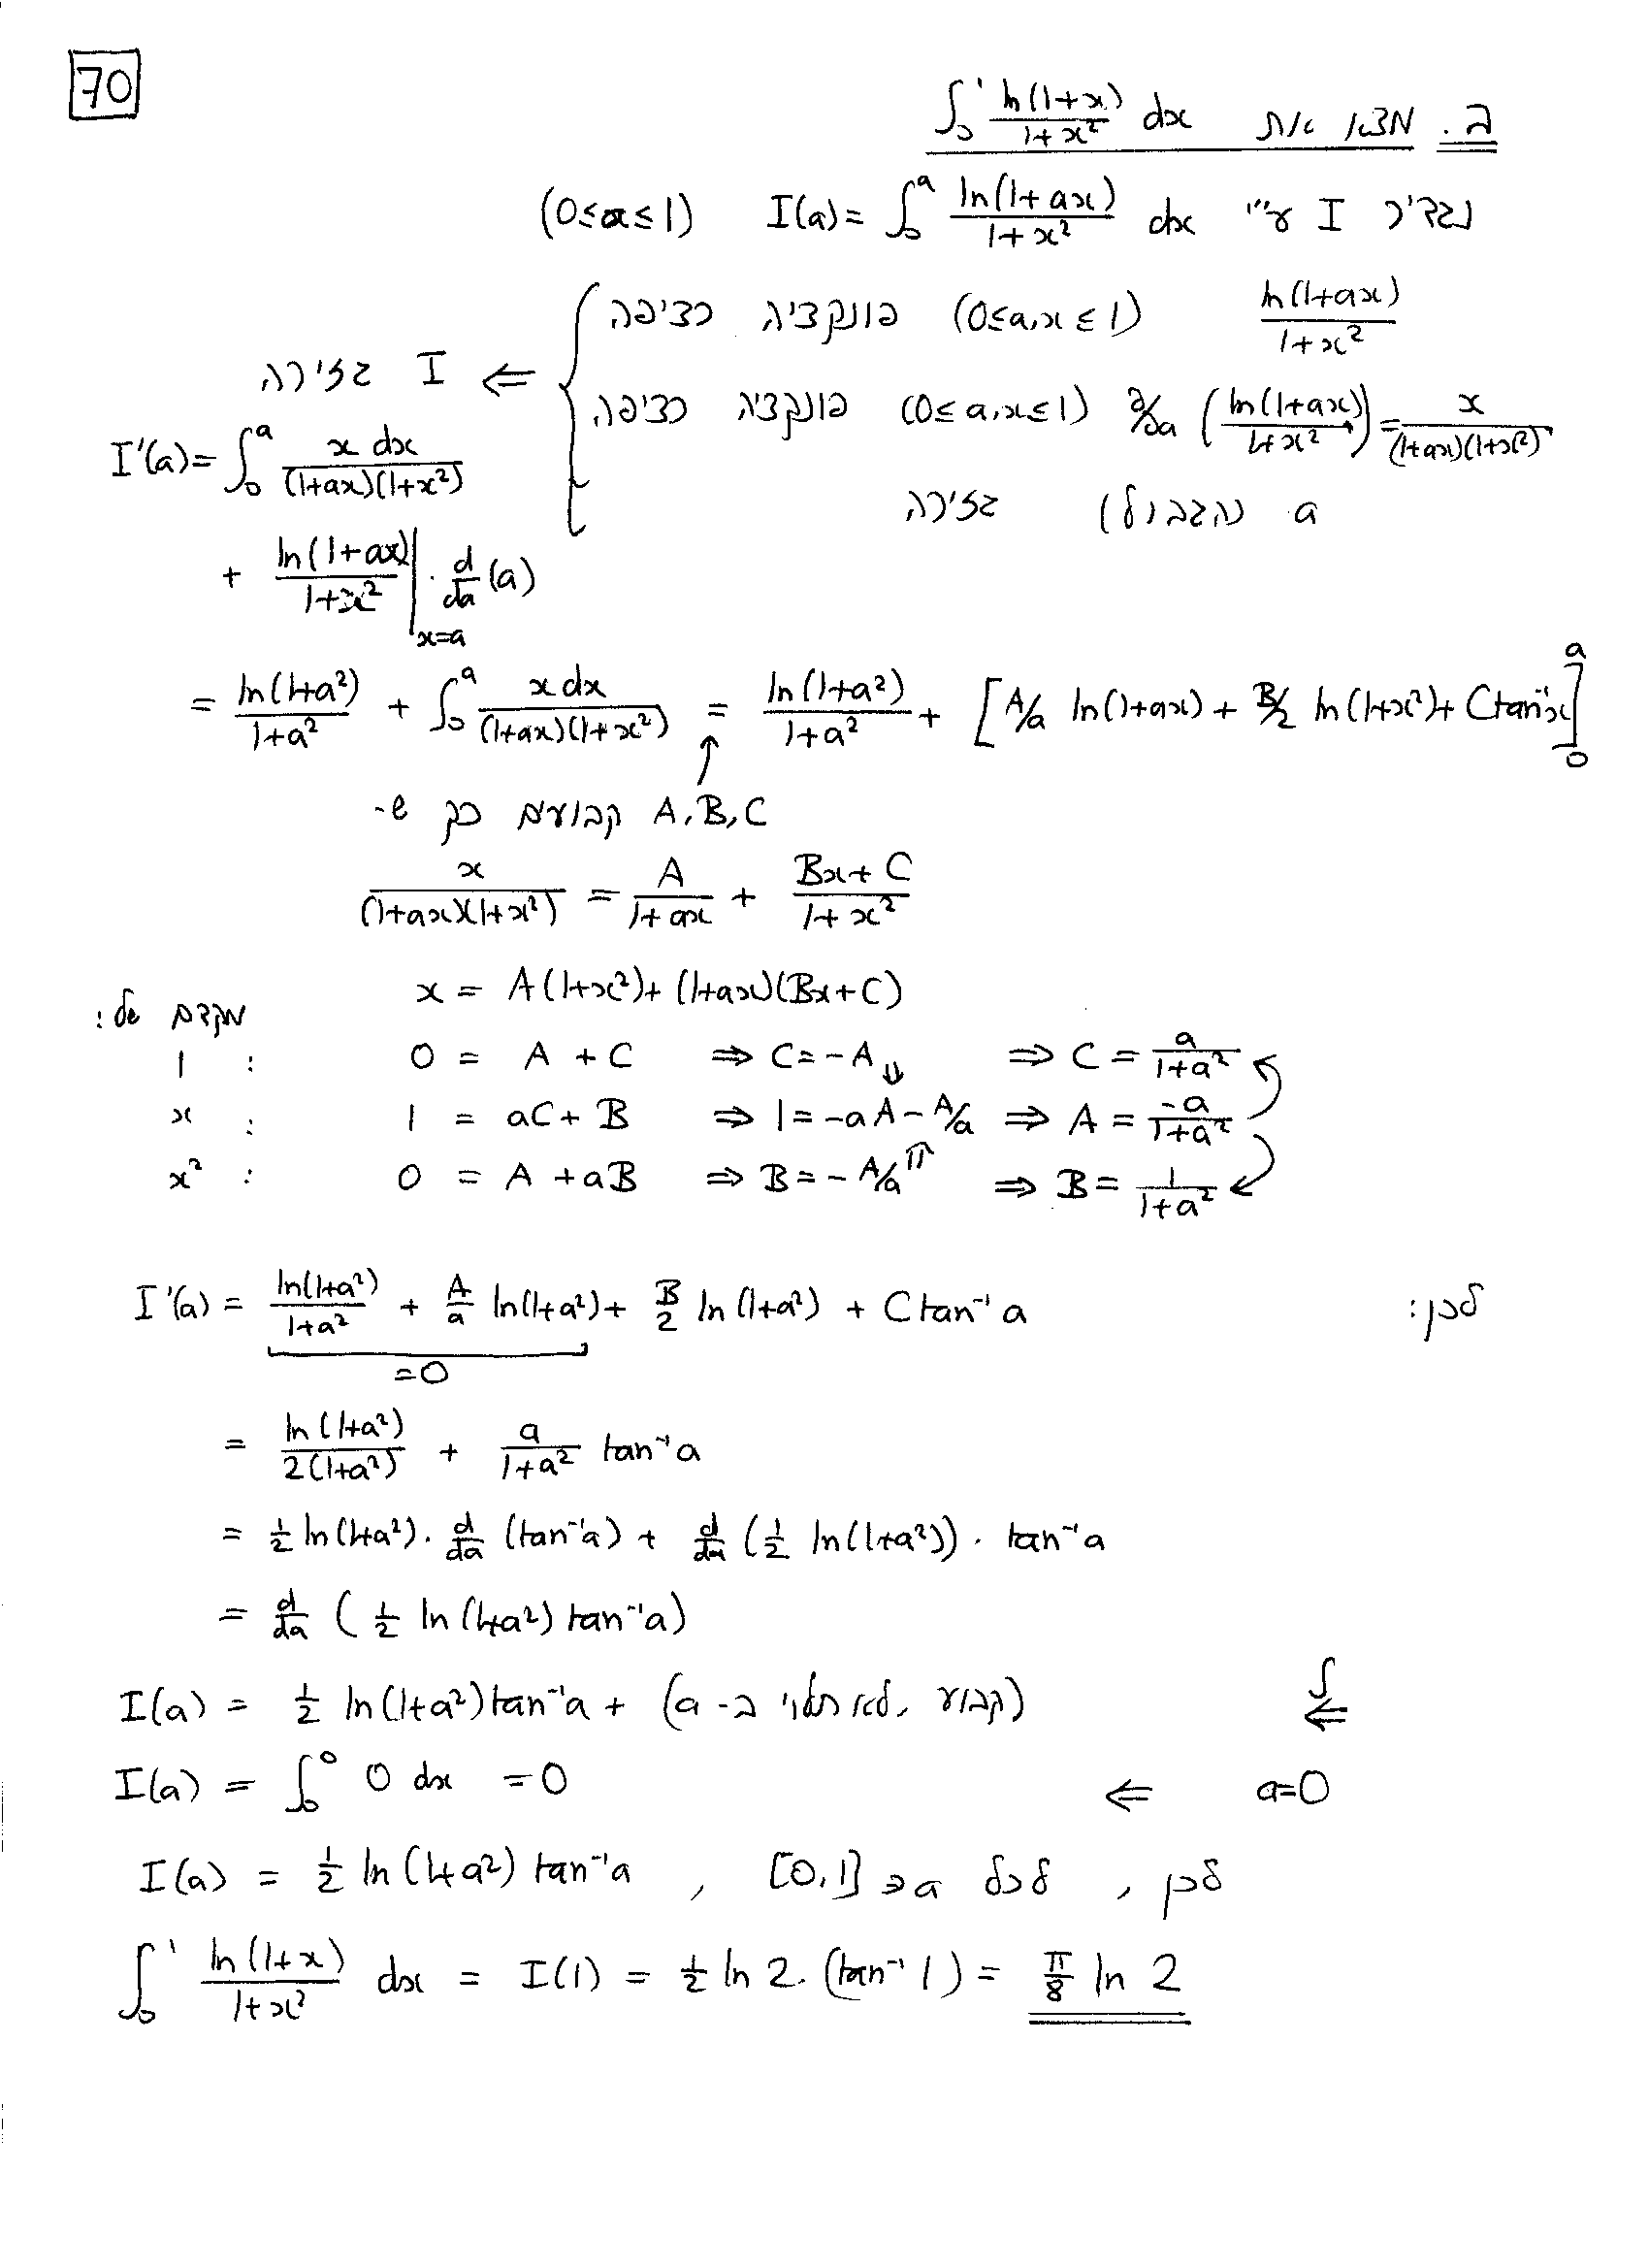 70
ב. מצא את ∫₀¹ ln(1+x)/(1+x²) dx
נגדיר I ע"י I(a) = ∫₀ᵃ ln(1+ax)/(1+x²) dx (0≤a≤1)
ln(1+ax)/(1+x²) (0≤a,x≤1) פונקציה רציפה
∂/∂a (ln(1+ax)/(1+x²)) = x/((1+ax)(1+x²)) (0≤a,x≤1) פונקציה רציפה
a (הגבול) גזירה
⇐ I גזירה
I'(a) = ∫₀ᵃ x dx/((1+ax)(1+x²))
+ ln(1+ax)/(1+x²) |ₓ₌ₐ · d/da (a)
= ln(1+a²)/(1+a²) + ∫₀ᵃ x dx/((1+ax)(1+x²)) = ln(1+a²)/(1+a²) + [A/a ln(1+ax) + B/2 ln(1+x²) + C tan⁻¹x]₀ᵃ
↑
A,B,C קבועים כך ש-
x/((1+ax)(1+x²)) = A/(1+ax) + (Bx+C)/(1+x²)
x = A(1+x²) + (1+ax)(Bx+C)
מקדם של:
1 : 0 = A + C ⇒ C = -A ⇒ C = a/(1+a²)
x : 1 = aC + B ⇒ 1 = -aA - A/a ⇒ A = -a/(1+a²)
x² : 0 = A + aB ⇒ B = -A/a ⇒ B = 1/(1+a²)
לכן: I'(a) = ln(1+a²)/(1+a²) + A/a ln(1+a²) + B/2 ln(1+a²) + C tan⁻¹ a
=0
= ln(1+a²)/(2(1+a²)) + a/(1+a²) tan⁻¹ a
= ½ ln(1+a²) · d/da (tan⁻¹a) + d/da (½ ln(1+a²)) · tan⁻¹a
= d/da (½ ln(1+a²) tan⁻¹a)
∫ ⇐ I(a) = ½ ln(1+a²) tan⁻¹a + (קבוע, לא תלוי ב-a)
a=0 ⇐ I(a) = ∫₀⁰ 0 dx = 0
לכן, לכל a∈[0,1], I(a) = ½ ln(1+a²) tan⁻¹a
∫₀¹ ln(1+x)/(1+x²) dx = I(1) = ½ ln 2 · (tan⁻¹ 1) = π/8 ln 2